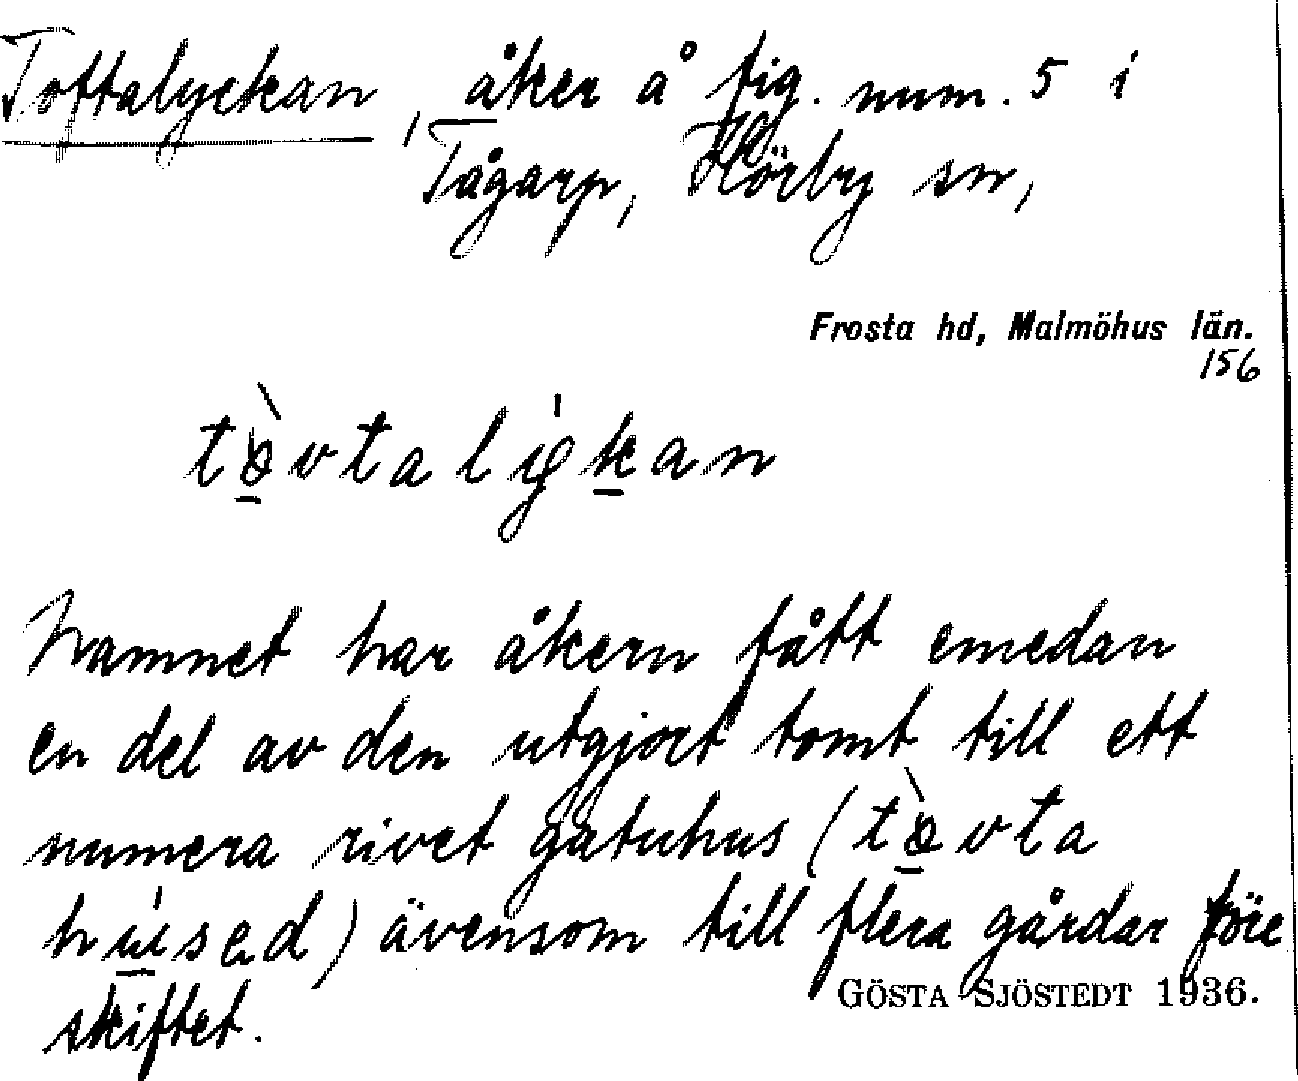 Toftalyckan, åker å fig. num. 5 i
Tågarp, Hörby sn,
Frosta hd, Malmöhus län.
156
tòvtalyckan
Namnet har åkern fått emedan
en del av den utgjort tomt till ett
numera rivet gatuhus (tòvta
húsed) ävensom till flera gårdar före
skiftet.
GÖSTA SJÖSTEDT 1936.